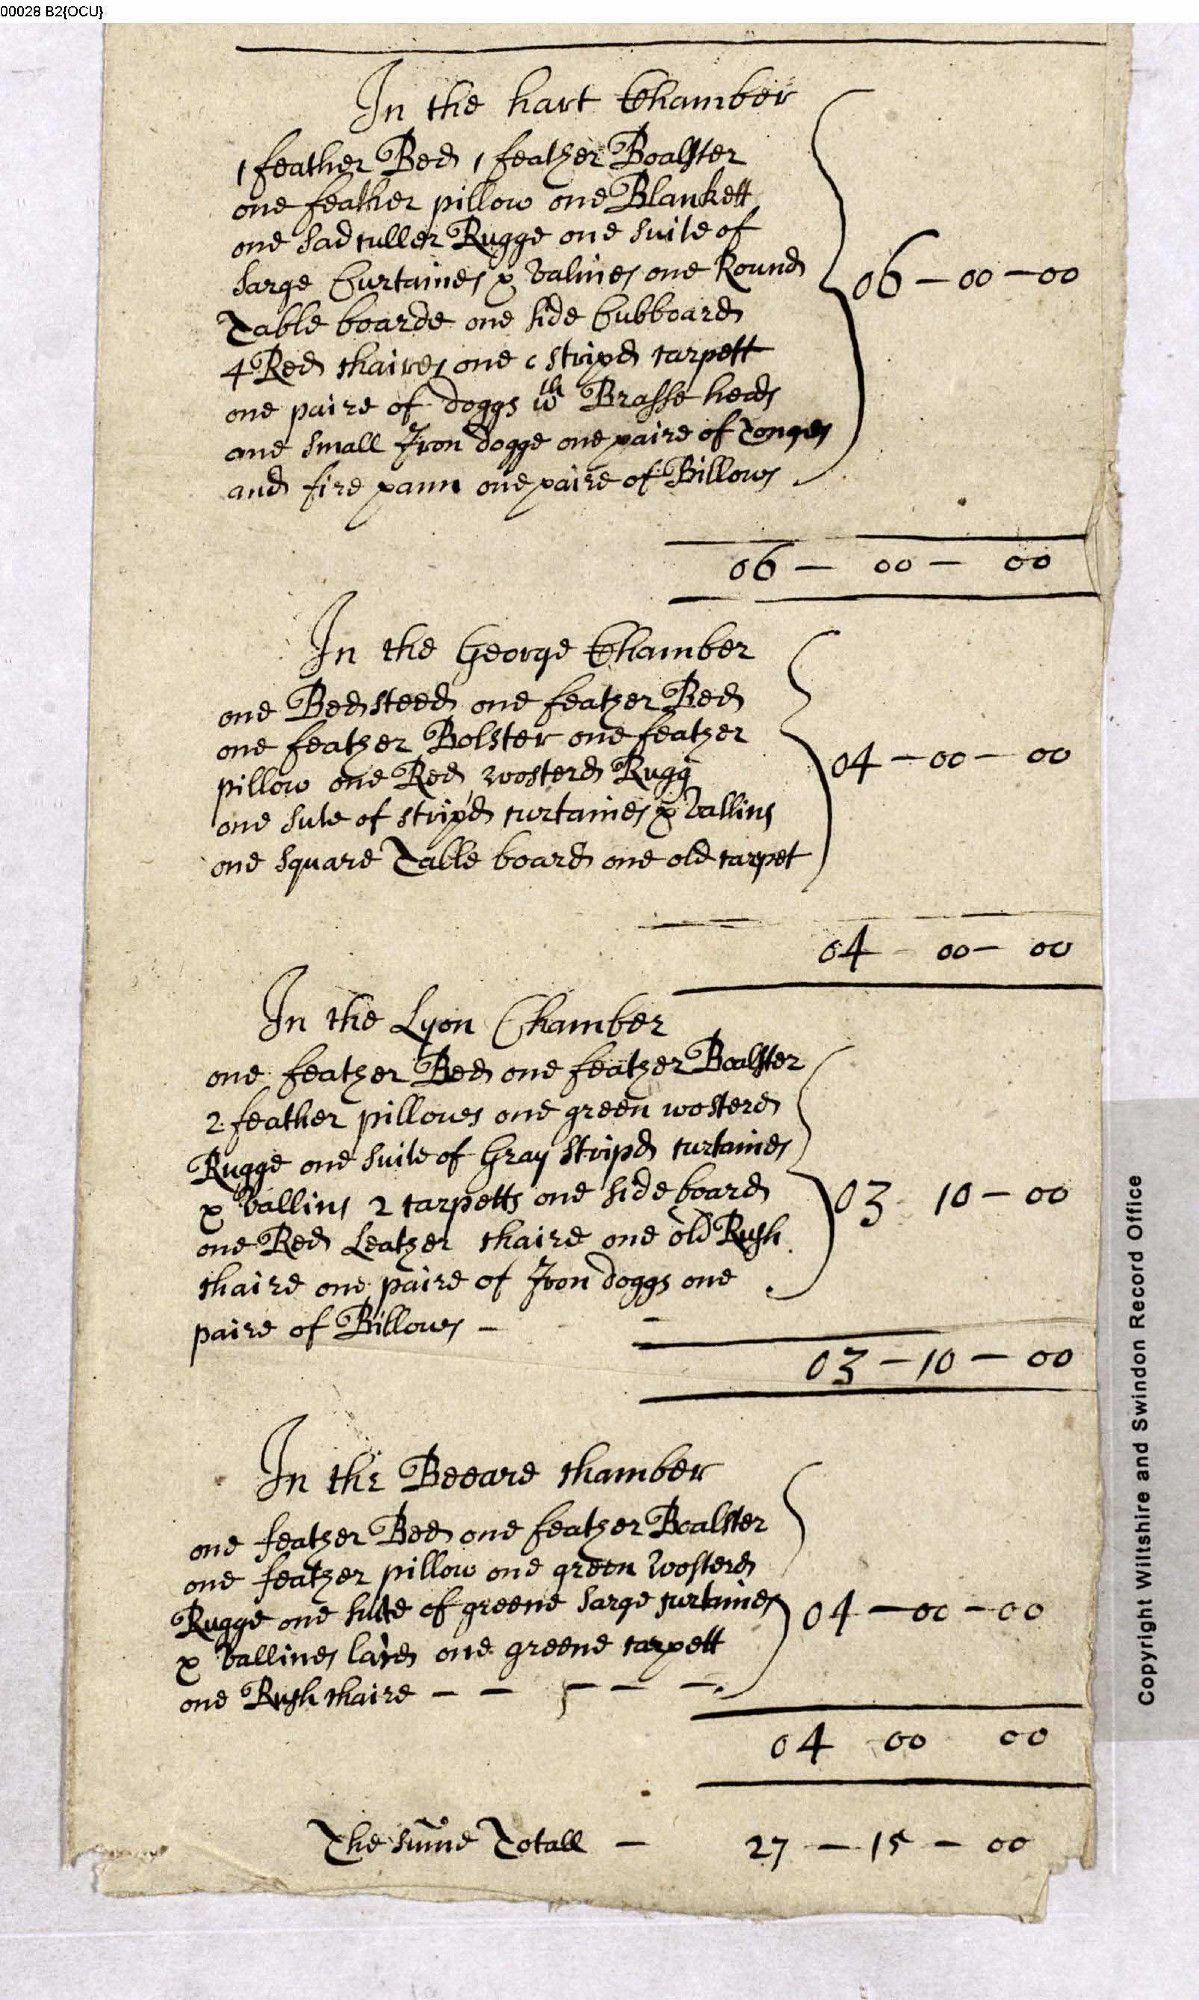 00028 B2{OCU}
In the hart Chamber
1 feather Bed 1 feather Boalster
one feather pillow one Blankett
one sad culler Rugge one suite of
sarge Curtaines & valines one Round
Table boarde one side Cubboard
4 Red chaires one stripd carpett
one paire of doggs wth Brasse heads
one small Iron dogge one paire of Tonges
and fire pann one paire of Billows
06 - 00 - 00
06 - 00 - 00
In the George Chamber
one Bedsteed one feather Bed
one feather Bolster one feather
pillow one Red wosterd Rugg
one sute of stripd curtaines & vallins
one square Table board one old carpet
04 - 00 - 00
04 00 - 00
In the Lyon Chamber
one feather Bed one feather Boalster
2 feather pillowes one green wosterd
Rugge one suite of Gray stripd curtaines
& vallins 2 carpetts one side board
one Red Leather chaire one old Rush
chaire one paire of Iron doggs one
paire of Billowes -
03 10 - 00
03 - 10 - 00
In the Beeare chamber
one feather Bed one feather Boalster
one feather pillow one green wosterd
Rugge one sute of greene sarge curtaines
& vallines laced one greene carpett
one Rush chaire - - - - -
04 - 00 - 00
04 00 00
The sume Totall - 27 - 15 - 00
Copyright Wiltshire and Swindon Record Office